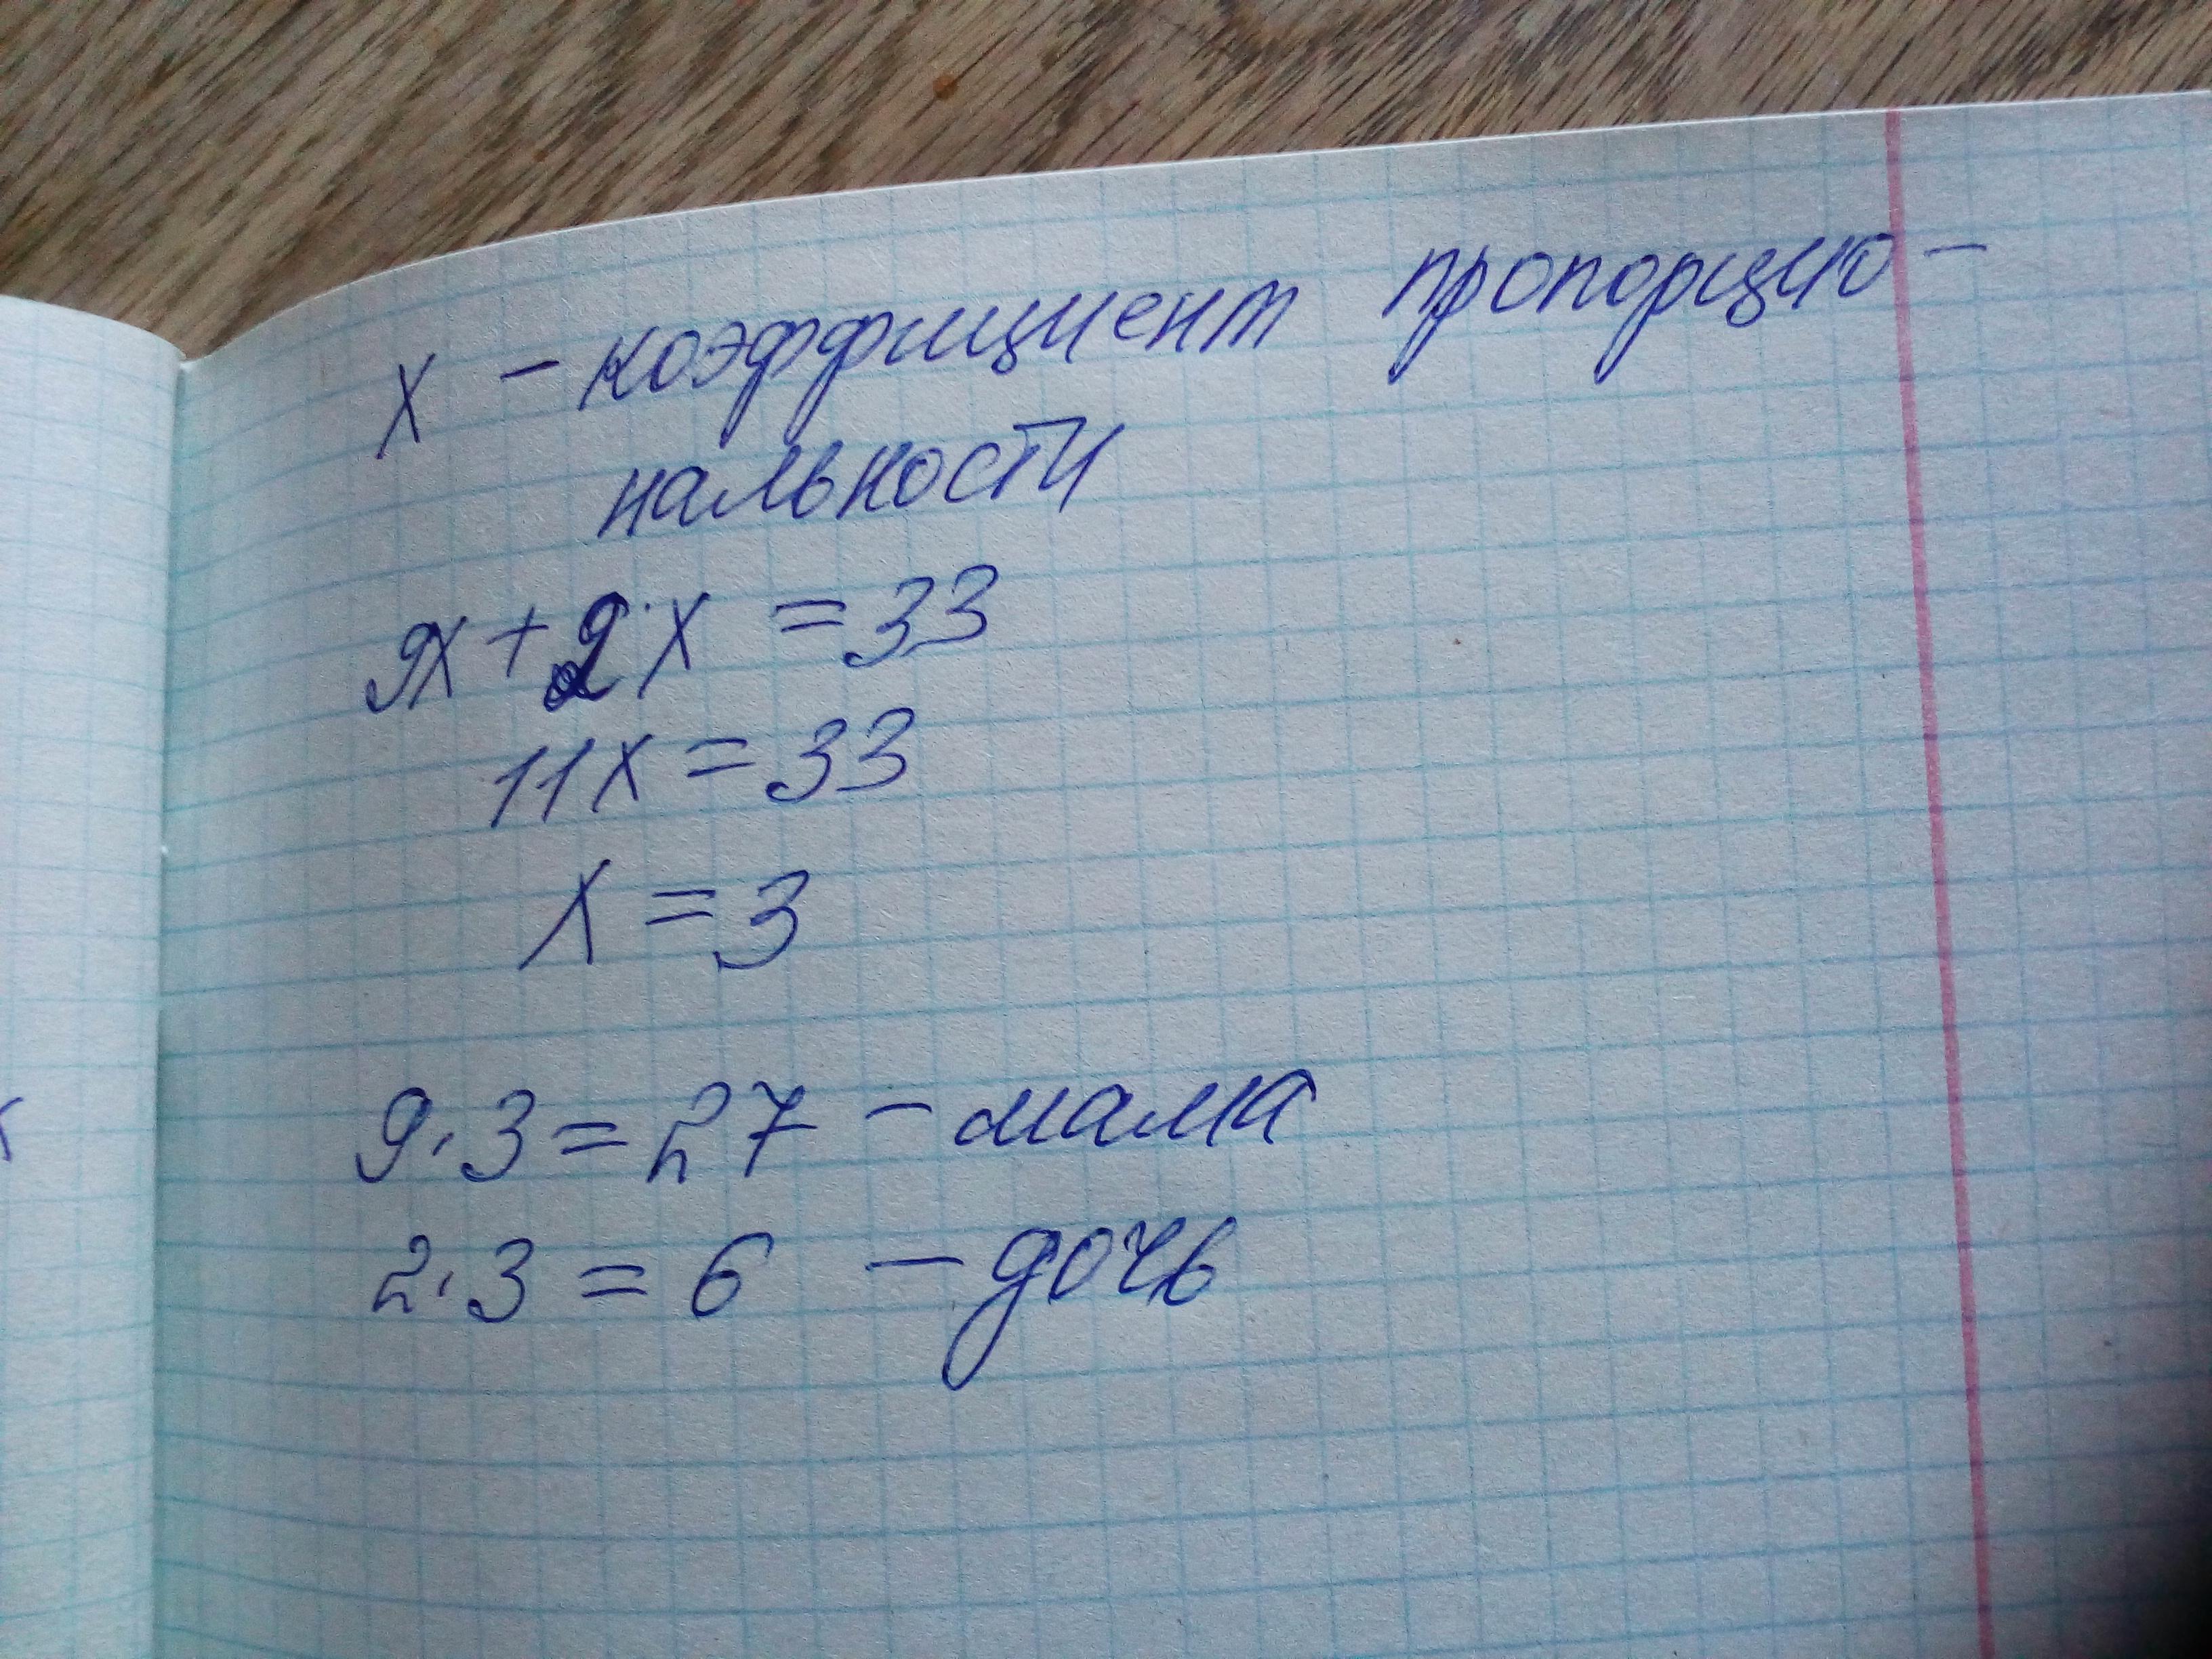 x – коэффициент пропорцио-
нальности
9x + 2·x = 33
11x = 33
x = 3
9·3 = 27 – мама
2·3 = 6 – дочь